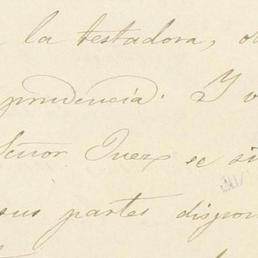 la testadora,
prudencia. Y
Señor Juez se
sus partes